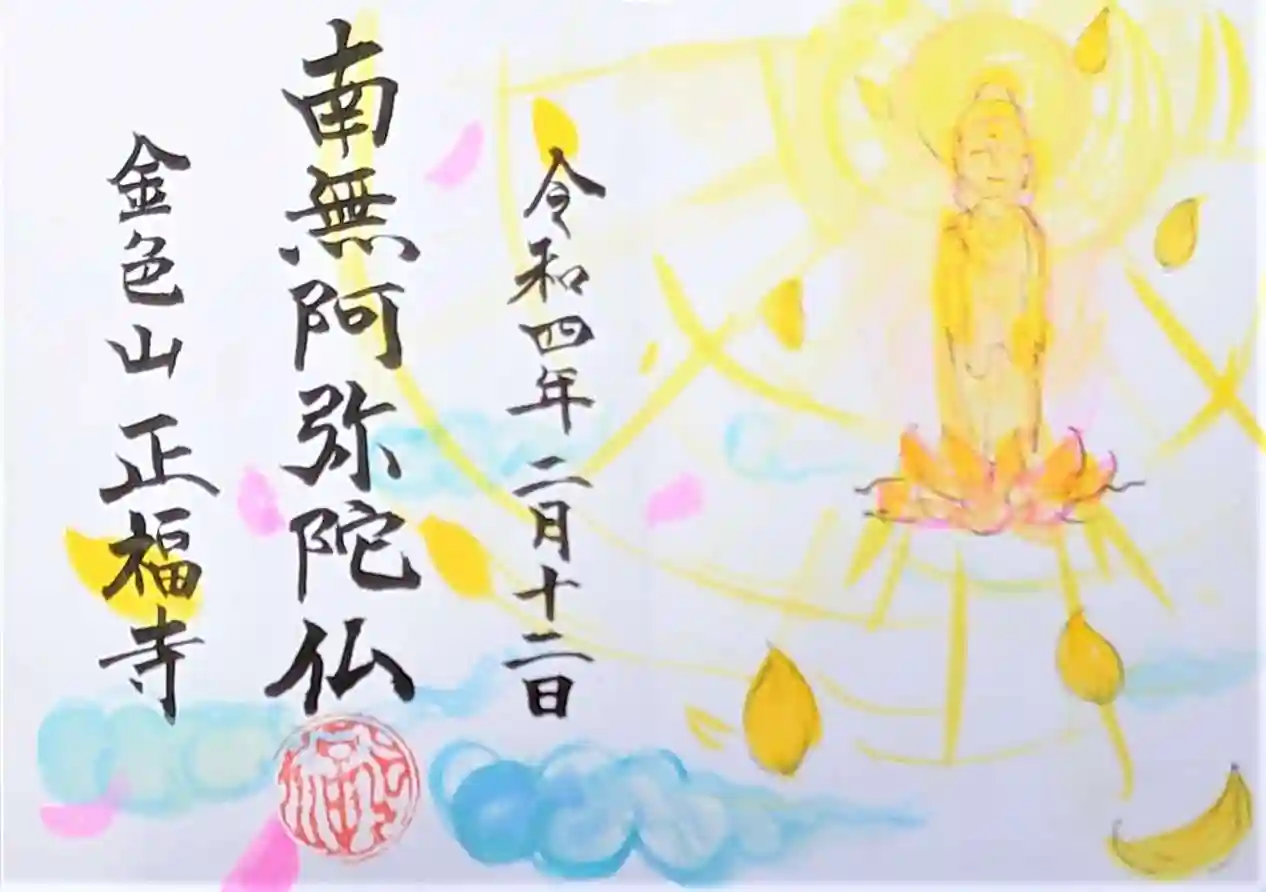 令和四年二月十二日
南無阿弥陀仏
金色山正福寺